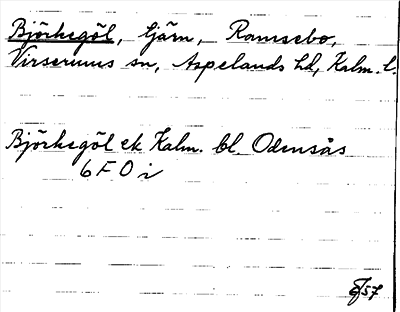 Björkegöl, tjärn, Ramsebo,
Virserums sn, Aspelands hd, Kalm. l.
Björkegöl ek Kalm. bl. Odensås
6 F O i
57